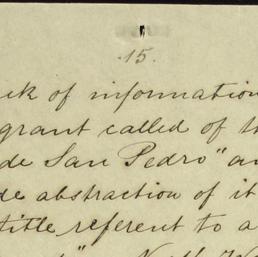 15.
of information
grant called of
de San Pedro" an
abstraction of it
title referent to a